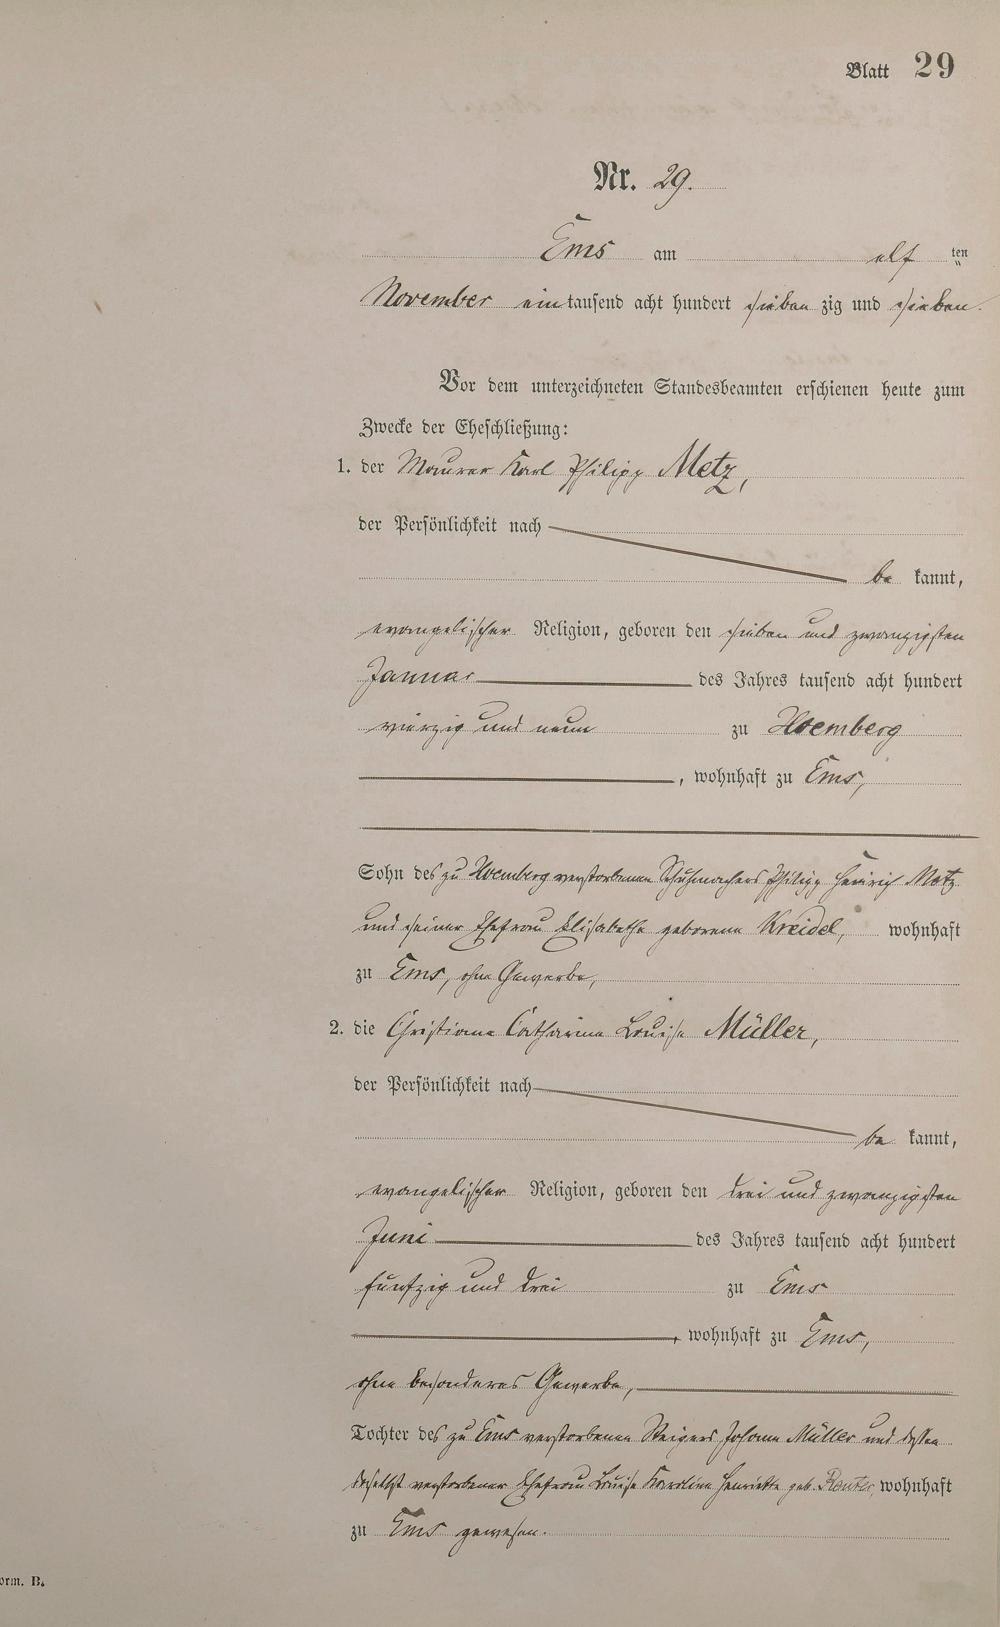 Blatt 29
Nr. 29.
Ems am elf ten
November eintausend acht hundert sieben zig und sieben.
Vor dem unterzeichneten Standesbeamten erschienen heute zum
Zwecke der Eheschließung:
1. der Maurer Karl Philipp Metz,
der Persönlichkeit nach
be kannt,
evangelischer Religion, geboren den sieben und zwanzigsten
Januar des Jahres tausend acht hundert
vierzig und neun zu Hoemberg
, wohnhaft zu Ems,
Sohn des zu Hoemberg verstorbenen Schuhmachers Philipp Heinrich Metz
und seiner Ehefrau Elisabethe geborene Kreidel, wohnhaft
zu Ems, ohne Gewerbe,
2. die Christiane Catharine Louise Müller,
der Persönlichkeit nach
be kannt,
evangelischer Religion, geboren den drei und zwanzigsten
Juni des Jahres tausend acht hundert
fünfzig und drei zu Ems
, wohnhaft zu Ems,
ohne besonderes Gewerbe,
Tochter des zu Ems verstorbenen Steigers Johann Müller und dessen
daselbst verstorbener Ehefrau Louise Karoline Henriette geb. Reuter, wohnhaft
zu Ems gewesen.
orm. B.